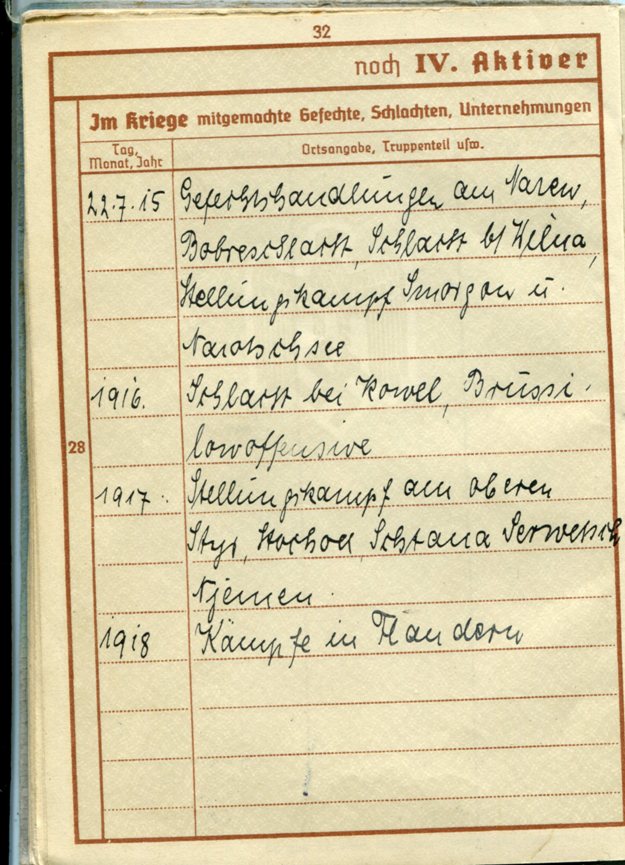 32
noch IV. Aktiver
Im Kriege mitgemachte Gefechte, Schlachten, Unternehmungen
Tag,
Monat, Jahr
Ortsangabe, Truppenteil usw.
22.7.15 Gefechtshandlungen am Narew,
Bobreschlacht, Schlacht bf Wilna,
Stellungskampf Smorgon u.
Narotschsee
1916. Schlacht bei Kowel, Brussi.
lowoffensive
28
1917. Stellungskampf am oberen
Styr, Stochod, Schtana Serwetsch
Njemen.
1918 Kämpfe in Flandern